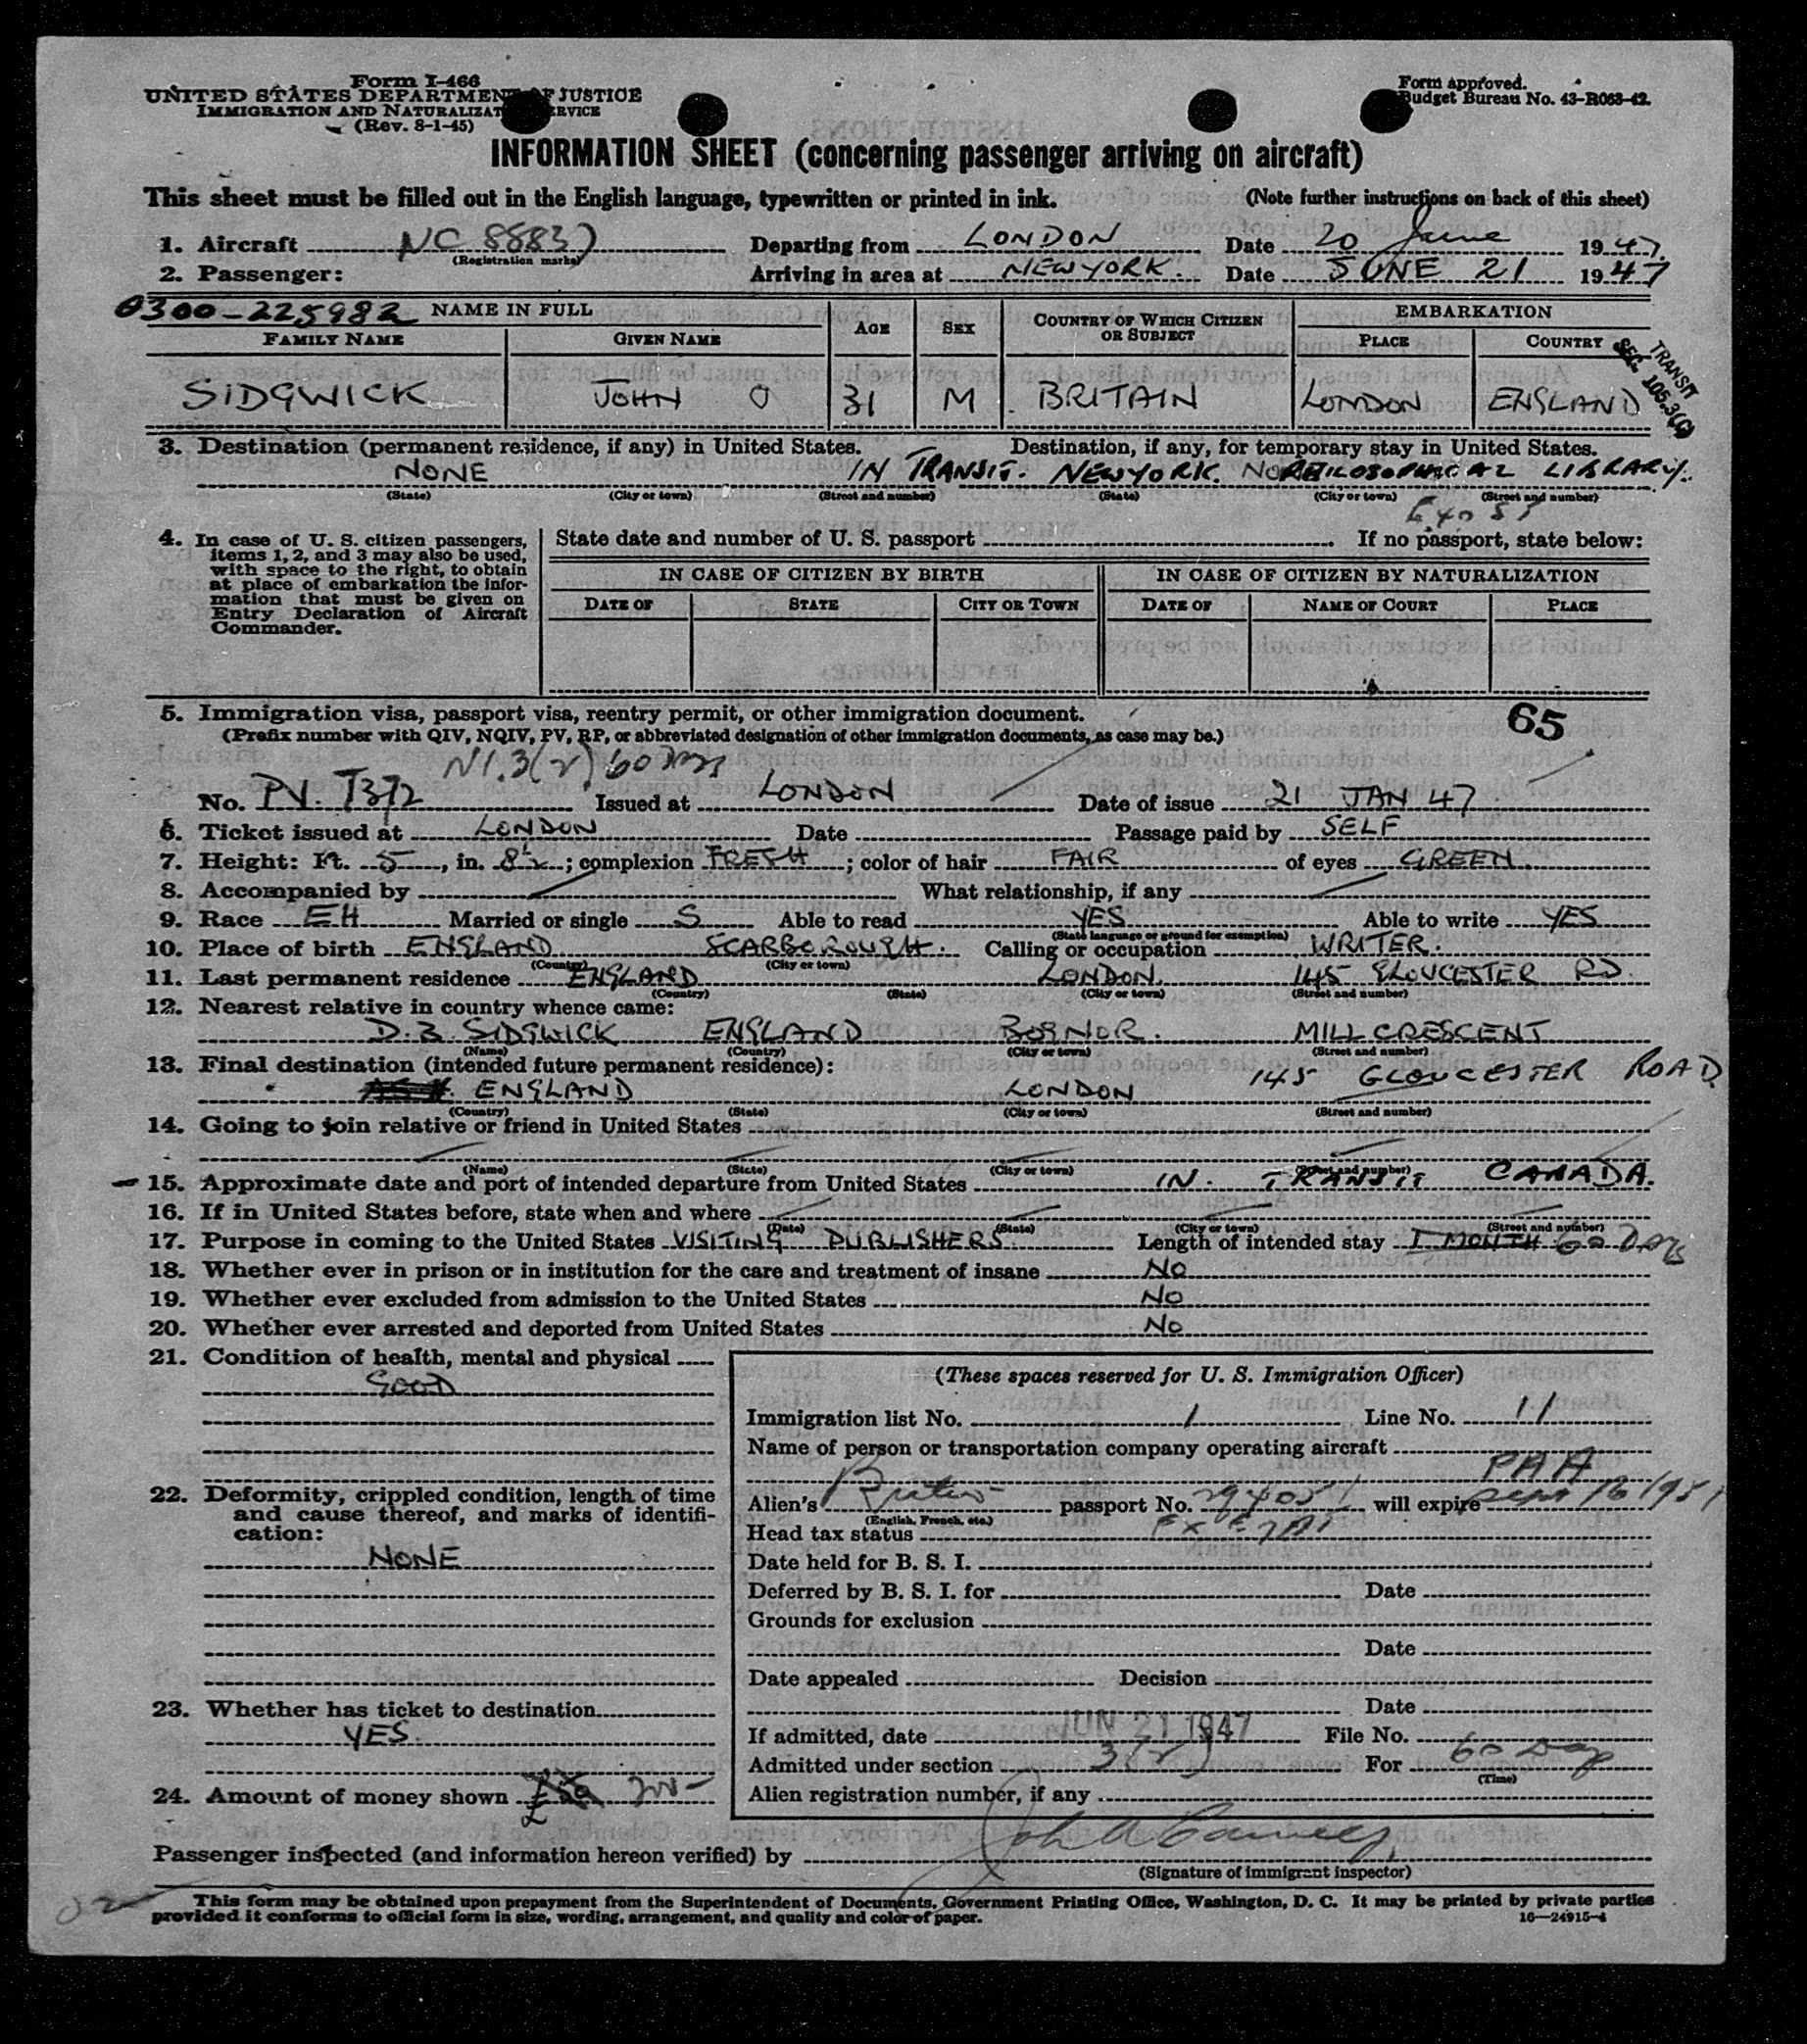 Form I-466
UNITED STATES DEPARTMENT OF JUSTICE
IMMIGRATION AND NATURALIZATION SERVICE
(Rev. 8-1-45)
Form approved.
Budget Bureau No. 43-R063-42.
INFORMATION SHEET (concerning passenger arriving on aircraft)
This sheet must be filled out in the English language, typewritten or printed in ink. (Note further instructions on back of this sheet)
1. Aircraft NC 88837 Departing from LONDON Date 20 June 1947.
(Registration marks)
2. Passenger: Arriving in area at NEW YORK. Date JUNE 21 1947
0300-225982 NAME IN FULL AGE SEX COUNTRY OF WHICH CITIZEN OR SUBJECT EMBARKATION
FAMILY NAME GIVEN NAME PLACE COUNTRY
TRANSIT
SEC. 105.3(c)
SIDGWICK JOHN O 31 M. BRITAIN LONDON ENGLAND
3. Destination (permanent residence, if any) in United States. Destination, if any, for temporary stay in United States.
NONE IN TRANSIT. NEW YORK. PHILOSOPHICAL LIBRARY.
(State) (City or town) (Street and number) (State) (City or town) (Street and number)
E 40 ST
4. In case of U. S. citizen passengers, items 1, 2, and 3 may also be used, with space to the right, to obtain at place of embarkation the information that must be given on Entry Declaration of Aircraft Commander.
State date and number of U. S. passport If no passport, state below:
IN CASE OF CITIZEN BY BIRTH IN CASE OF CITIZEN BY NATURALIZATION
DATE OF STATE CITY OR TOWN DATE OF NAME OF COURT PLACE
5. Immigration visa, passport visa, reentry permit, or other immigration document. 65
(Prefix number with QIV, NQIV, PV, RP, or abbreviated designation of other immigration documents, as case may be.)
3(2) 60 Days
No. PV. T372 Issued at LONDON Date of issue 21 JAN 47
6. Ticket issued at LONDON Date Passage paid by SELF
7. Height: Ft. 5, in. 8½; complexion FRESH; color of hair FAIR of eyes GREEN.
8. Accompanied by What relationship, if any
9. Race EH Married or single S Able to read YES Able to write YES
(State language or ground for exemption)
10. Place of birth ENGLAND SCARBOROUGH. Calling or occupation WRITER.
(Country) (City or town)
11. Last permanent residence ENGLAND LONDON. 145 GLOUCESTER RD.
(Country) (State) (City or town) (Street and number)
12. Nearest relative in country whence came:
D. B. SIDGWICK ENGLAND BOGNOR. MILL CRESCENT
(Name) (Country) (City or town) (Street and number)
13. Final destination (intended future permanent residence):
ENGLAND LONDON 145 GLOUCESTER ROAD
(Country) (State) (City or town) (Street and number)
14. Going to join relative or friend in United States
(Name) (State) (City or town) (Street and number)
15. Approximate date and port of intended departure from United States IN TRANSIT CANADA.
16. If in United States before, state when and where
(Date) (State) (City or town) (Street and number)
17. Purpose in coming to the United States VISITING PUBLISHERS. Length of intended stay 1 MONTH 60 Days
18. Whether ever in prison or in institution for the care and treatment of insane NO
19. Whether ever excluded from admission to the United States NO
20. Whether ever arrested and deported from United States NO
21. Condition of health, mental and physical
GOOD
22. Deformity, crippled condition, length of time and cause thereof, and marks of identification:
NONE
23. Whether has ticket to destination
YES.
24. Amount of money shown £50
(These spaces reserved for U. S. Immigration Officer)
Immigration list No. 1 Line No. 11
Name of person or transportation company operating aircraft
PAA
Alien's passport No. will expire Sept 16 1951
(English, French, etc.)
Head tax status
Date held for B. S. I.
Deferred by B. S. I. for Date
Grounds for exclusion
Date
Date appealed Decision
Date
If admitted, date JUN 21 1947 File No.
Admitted under section 3(2) For 60 Days
(Time)
Alien registration number, if any
Passenger inspected (and information hereon verified) by John A
(Signature of immigrant inspector)
This form may be obtained upon prepayment from the Superintendent of Documents, Government Printing Office, Washington, D. C. It may be printed by private parties
provided it conforms to official form in size, wording, arrangement, and quality and color of paper. 16—24915-4